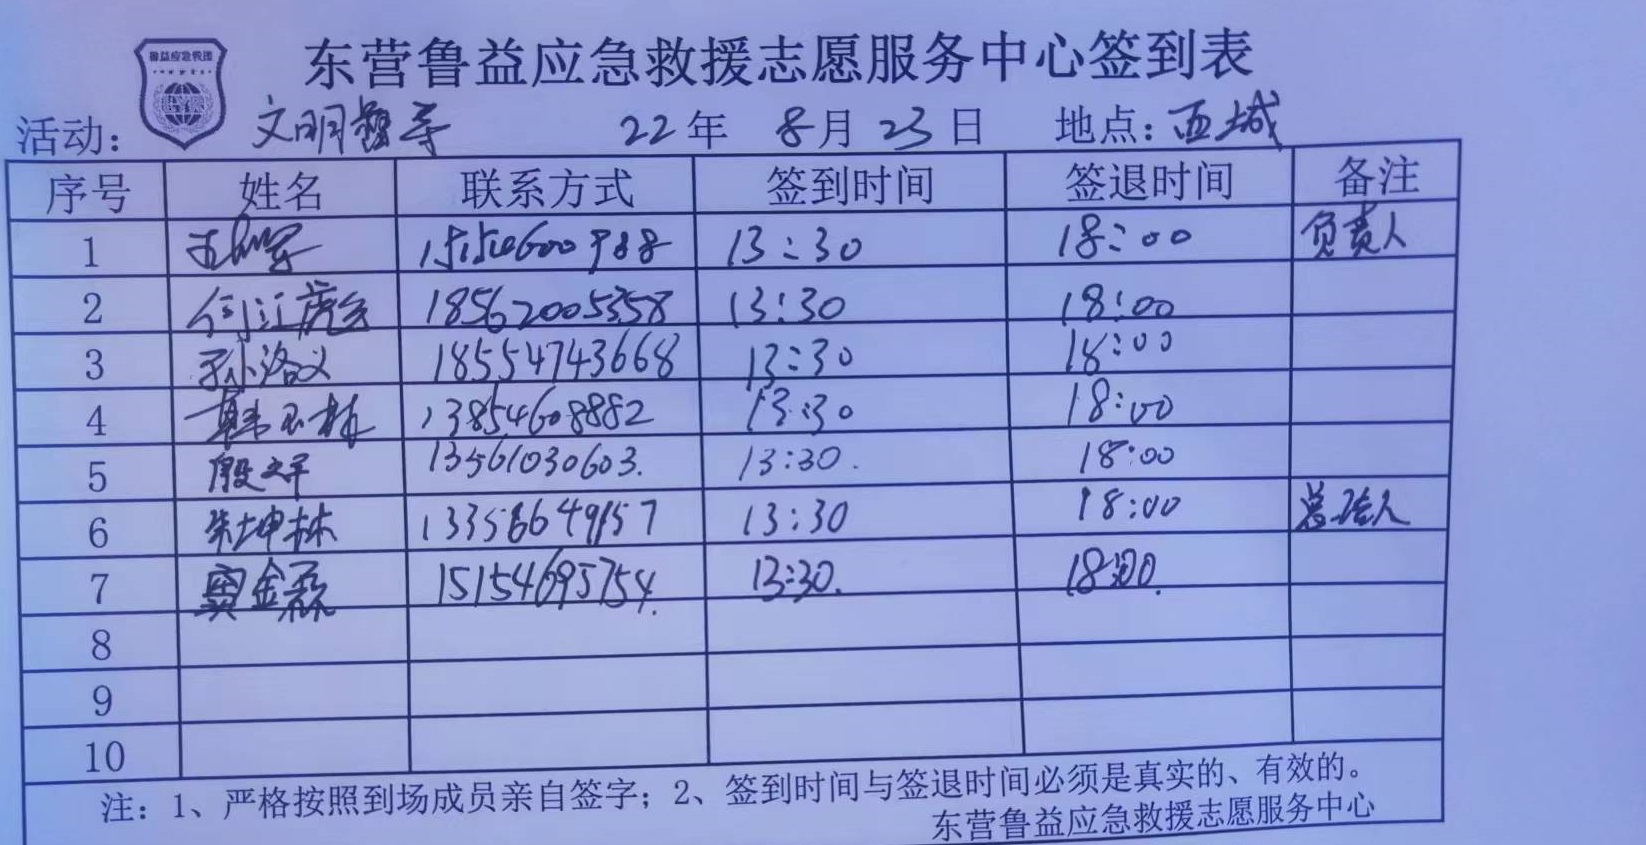 鲁益应急救援
东营鲁益应急救援志愿服务中心签到表
活动: 文明督导 22年 8月23日 地点: 西城
序号 姓名 联系方式 签到时间 签退时间 备注
1 15154600988 13:30 18:00 负责人
2 18562005358 13:30 18:00
3 孙洛义 18554743668 13:30 18:00
4 韩玉林 13854608882 13:30 18:00
5 殷文平 13561030603. 13:30. 18:00
6 朱坤林 13356649157 13:30 18:00
7 窦金磊 15154695754. 13:30. 18:00.
8
9
10
注: 1、严格按照到场成员亲自签字; 2、签到时间与签退时间必须是真实的、有效的。
东营鲁益应急救援志愿服务中心